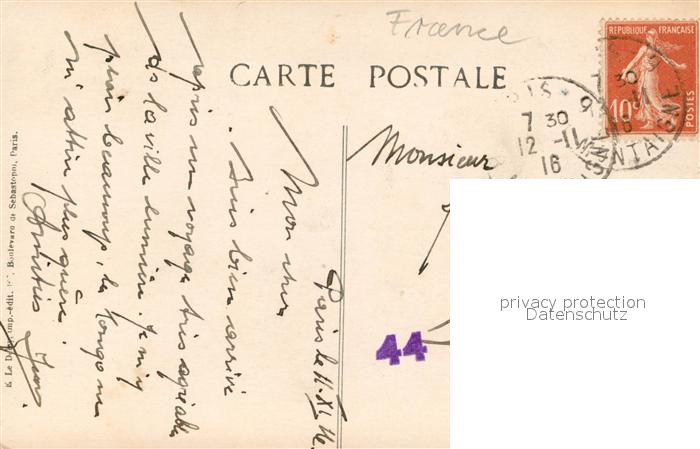 France
CARTE POSTALE
REPUBLIQUE FRANÇAISE
10c
POSTES
7 30
12 -11
16
MONTAIGNE
Monsieur
44
privacy protection
Datenschutz
Paris le 11-XI 16
Mon cher
Suis bien arrivé
après un voyage très agréable
de la ville lumière. Je m'y
plais beaucoup, le Congo ne
m'attire plus guère.
Amitiés
Boulevard de Sébastopol, Paris.